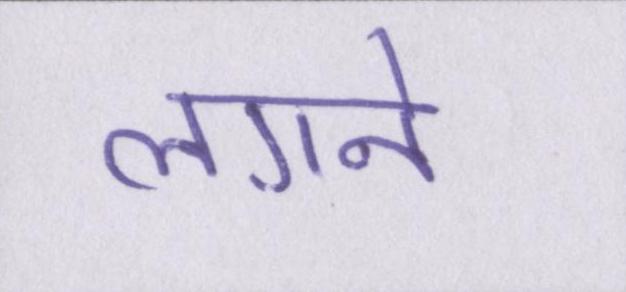 लगने